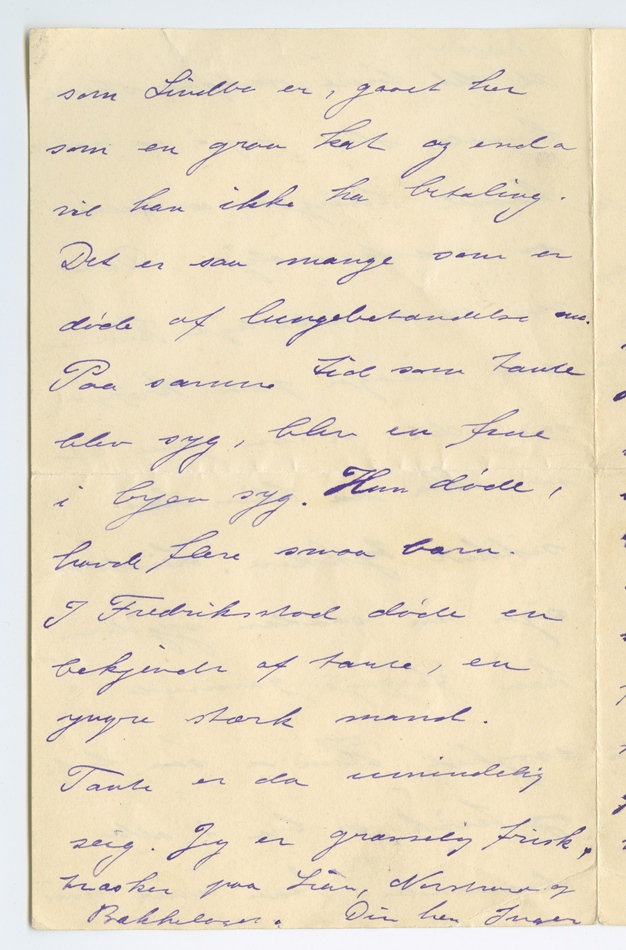 som Lindbo er, gaaet her
som en graa kat og enda
vil han ikke ha betaling.
Det er saa mange som er
døde af lungebetændelse nu.
Paa samme tid som tante
blev syg, blev en frue
i byen syg. Hun døde,
havde flere smaa barn.
I Fredriksstad døde en
bekjendt af tante, en
yngre stærk mand.
Tante er da umindelig
seig. Jeg er græsselig frisk,
trasker paa Lian, Nordstrand og
Bækkelaget. Din hen Inger